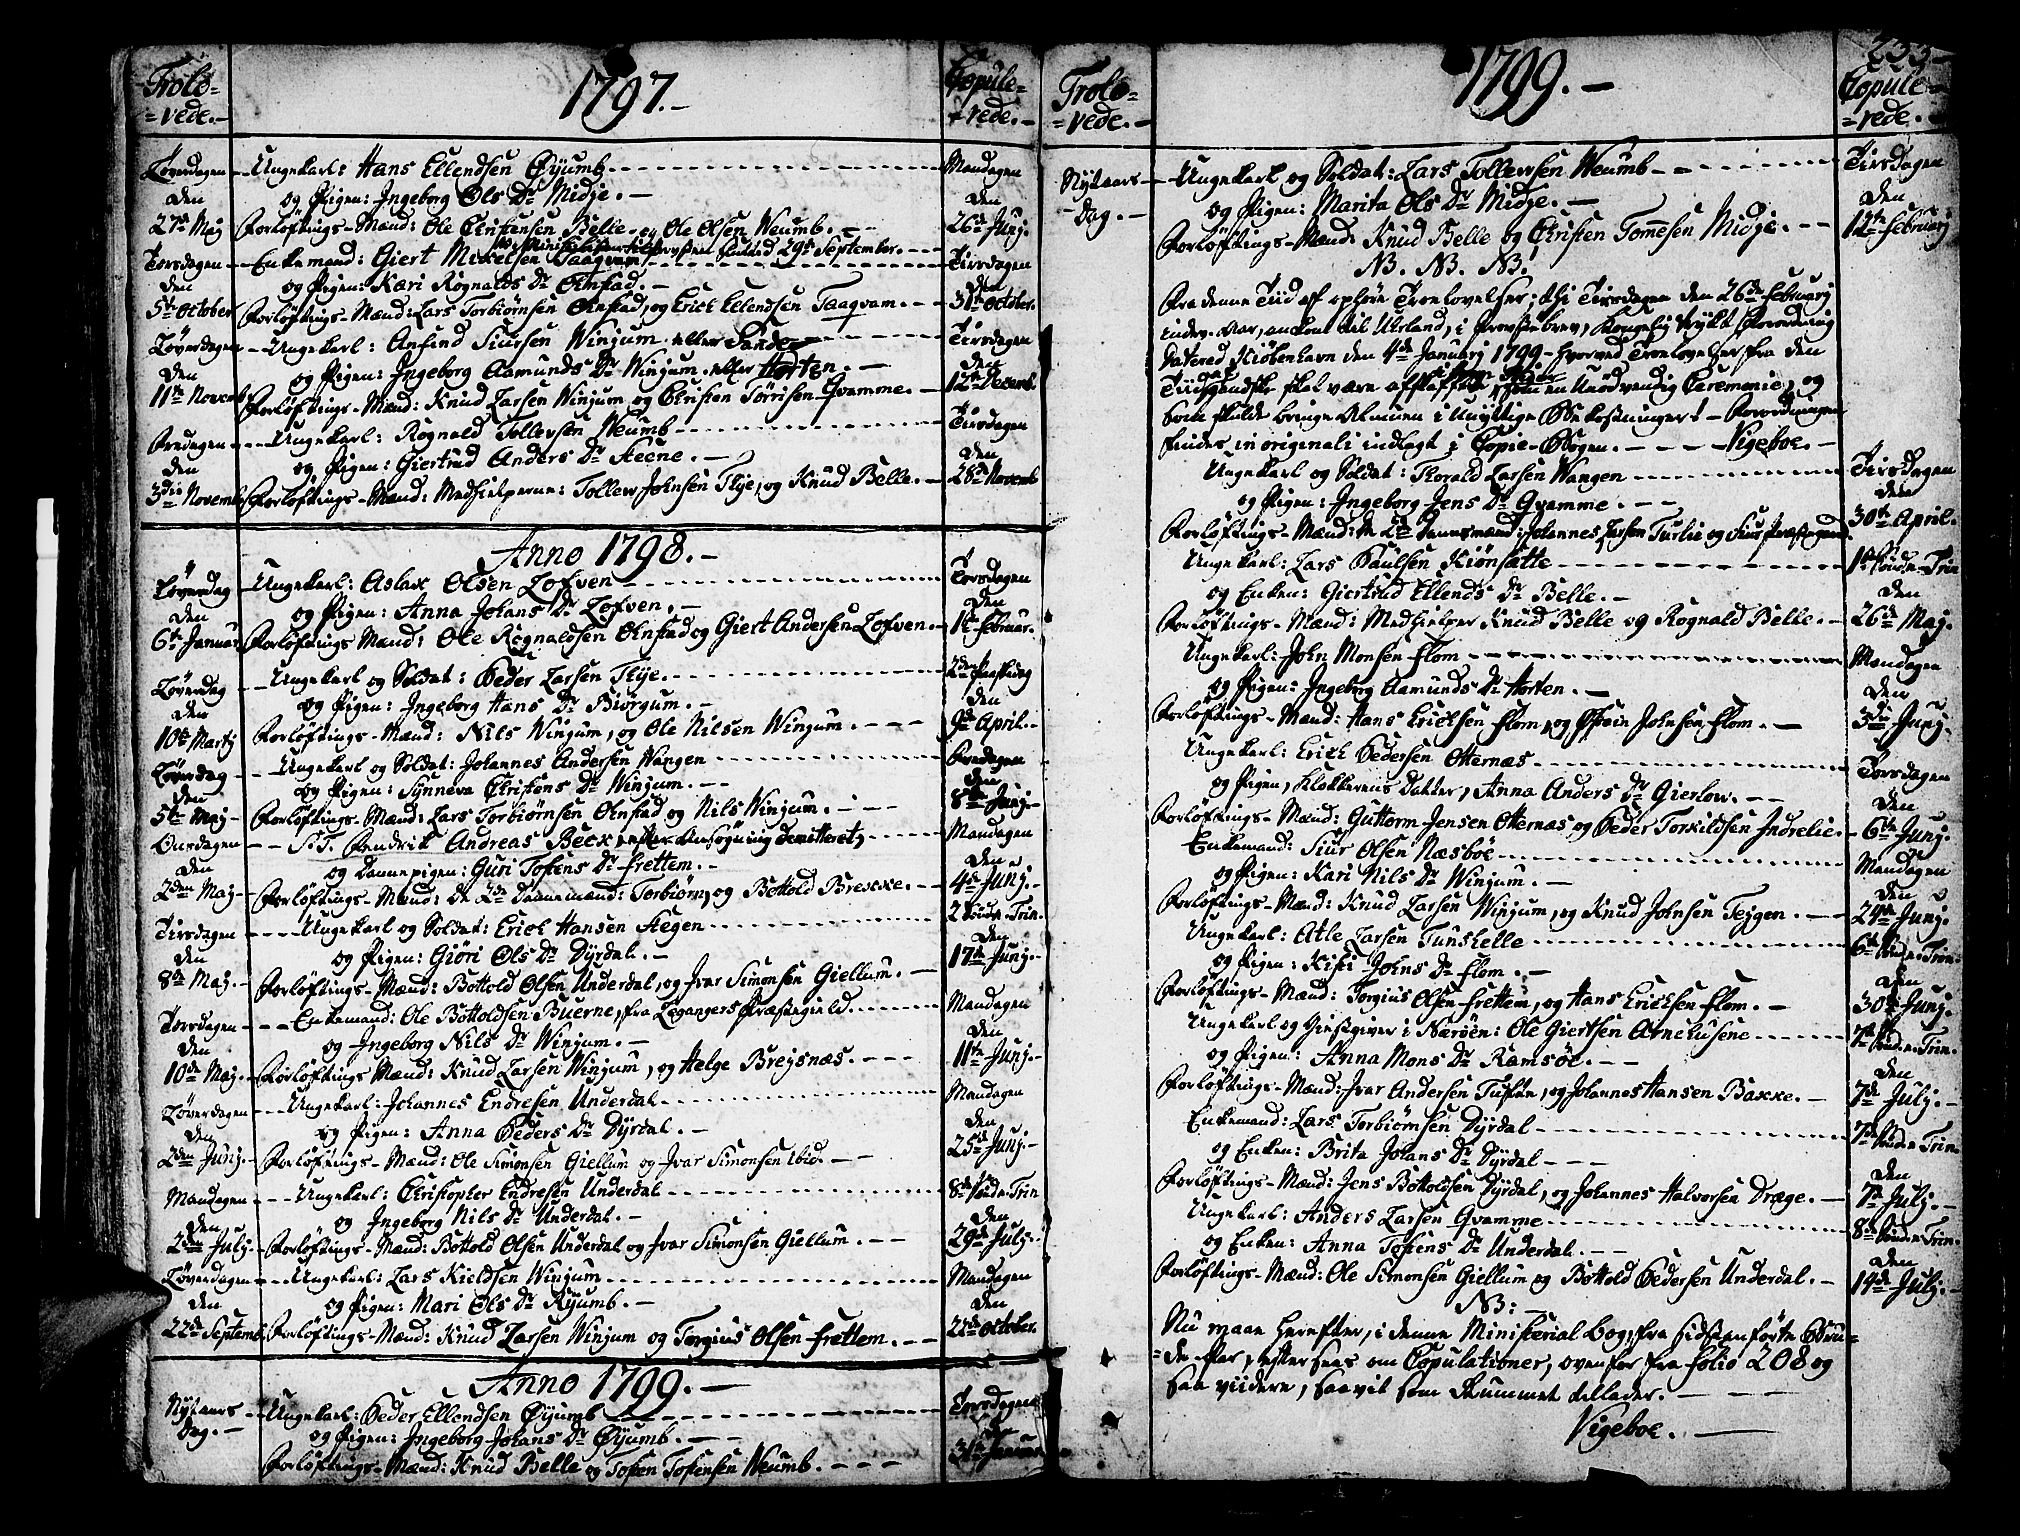 Trolo=
=vede.-
1797.-
Copule=
=rede.-
Løverdagen
den
27de Maj
Ungekarl: Hans Ellendsen Øyumb
og Pigen: Ingeborg Ols Dr Midje.-
Forløftnings-Mænd: Ole Christensen Belle og Ole Olsen Weumb.-
Mandagen
den
26de Junj.
Torsdagen
den
5te October
Enkemand: Giert Mickelsen Taagvam,
og Pigen: Kari Rognalds Dr Onstad.-
Forløftnings-Mænd: Lars Torbiørnsen Onstad, og Erick Ellendsen Taagvam.-
Tirsdagen
den
31te October.
Løverdagen
den
11te Novemb
Ungekarl: Anfind Siursen Winjum eller Sande
og Pigen: Ingeborg Aamunds Dr Winjum eller Horten.-
Forløftnings-Mænd: Knud Larsen Winjum og Christen Tørrisen Gvamme.-
Tirsdagen
den
12te Decemb.
Fredagen
den
3die Novemb
Ungekarl: Rognald Tollevsen Weumb
og Pigen: Giertrud Anders Dr Steene.-
Forløftnings-Mænd: Medhielperne: Tollew Johnsen Skje, og Knud Belle.-
Tirsdagen
den
28de Novemb
Anno 1798.-
Løverdag
den
6te Januar
Ungekarl: Aslak Olsen Lofven
og Pigen: Anna Johans Dr Lofven.-
Forløftnings Mænd: Ole Rognaldsen Onstad og Giert Andersen Lofven.-
Torsdagen
den
1te Februar.
Løverdag
den
10de Martj
Ungekarl og Soldat: Peder Larsen Skje.
og Pigen: Ingeborg Hans Dr Biørgum.-
Forløftnings-Mænd: Nils Winjum, og Ole Nilsen Winjum.-
2den Paaskedag
den
9de April.-
Løverdag
den
5te Maj-
Ungekarl og Soldat: Johannes Andersen Wangen
og Pigen: Synneva Christens Dr Winjum.-
Forløftnings-Mænd: Lars Torbiørnsen Onstad og Nils Winjum.-
Fredagen
den
8de Junj.-
Onsdagen
den
2den Maj-
S:T. Hendrik Andreas Beck, efter Ansøgning demitteret,
og Dannepigen: Guri Tostens Dr Frettem.-
Forløftnings-Mænd: De 2de Dannemænd: Torbiørn, og Bottold Brekke.-
Mandagen
den
4de Junj.-
Tirsdagen
den
8de Maj.-
Ungekarl og Soldat: Erick Hansen Stegen
og Pigen: Giøri Ols Dr Dyrdal.-
Forløftnings-Mænd: Bottold Olsen Underdal, og Ivar Simonsen Giellum.-
2 Sønde. Trin.
den
17de Junj.-
Torsdagen
den
10de Maj.
Enkemand: Ole Bottoldsen Buerne, fra Legangers Præstegield.
og Ingeborg Nils Dr Winjum.-
Forløftnings Mænd: Knud Larsen Winjum, og Helge Brejsnæs.-
Mandagen
den
11te Junj.-
Løverdagen
den
2den Junj.-
Ungekarl: Johannes Endresen Underdal
og Pigen: Anna Peders Dr Dyrdal.-
Forløftnings-Mænd: Ole Simonsen Giellum og Ivar Simonsen ibid.-
Mandagen
den
25de Junj.-
Mandagen
den
2den Julj.-
Ungekarl: Christopher Endresen Underdal
og Ingeborg Nils Dr Underdal.-
Forløftnings-Mænd: Bottold Olsen Underdal og Ivar Simonsen Giellum.-
8de Sønde. Trin
den
29de Julj.-
Løverdagen
den
22de Septemb.
Ungekarl: Lars Kieldsen Winjum
og Pigen: Mari Ols Dr Ryumb.-
Forløftnings-Mænd: Knud Larsen Winjum og Torgius Olsen Frettem.-
Mandagen
den
22de October.
Anno 1799.-
Nytaars
Dag.-
Ungekarl: Peder Ellendsen Øyumb
og Pigen: Ingeborg Johans Dr Øyumb.-
Forløftnings-Mænd: Knud Belle og Tosten Tostensen Weumb.-
Torsdagen
31te Januar
Trolo=
=vede.-
1799.-
233-
Copule=
=rede.-
Nytaars
-Dag.-
Ungekarl og Soldat: Lars Tollewsen Weumb
og Pigen: Marita Ols Dr Midje.-
Forløftnings-Mænd: Knud Belle og Christen Tommesen Midje.-
Tirsdagen
den
12te Februarj
NB. NB. NB.
Fra denne Tiid af ophøre Troelovelser; thi Tirsdagen den 26de Februarj
indev. Aar, ankom til Urland, i Provstebrev, Kongelig trykt Forordning
dateret Kiøbenhavn den 4de Januarj 1799- hvorved Troelovelser fra den
Tiid gandske skal være afskaffet, som en Unødvendig Ceremonie, og
som skulde bringe Almuen i Unyttige Bekostninger!- Forordningen
findes in originali indlagt i Copie-Bogen.- Vigeboe.-
Ungekarl og Soldat: Thorald Larsen Wangen
og Pigen: Ingeborg Jens Dr Gvamme.-
Forløftnings-Mænd: De 2de Dannemænd: Johannes Larsen Turlie og Siur
Tirsdagen
den
30te April.
Ungekarl: Lars Paulsen Kiønsætte
og Enken: Giertrud Ellends Dr Belle.-
Forløftnings-Mænd: Medhielper Knud Belle og Rognald Belle.-
1te Sønde. Trin
den
26de Maj.
Ungekarl: John Monsen Flom
og Pigen: Ingeborg Aamunds Dr Horten.-
Forløftnings-Mænd: Hans Ericksen Flom, og Østein Johnsen Flom.-
Mandagen
den
3die Junj.
Ungekarl: Erick Pedersen Otternæs
og Pigen, Klokkerens Datter, Anna Anders Dr Gierlow.-
Forløftnings-Mænd: Guttorm Jensen Otternæs og Peder Torkildsen Indrelie.-
Torsdagen
den
6te Junj.
Enkemand: Siur Olsen Næsbøe
og Pigen: Kari Nils Dr Winjum.-
Forløftnings-Mænd: Knud Larsen Winjum, og Knud Johnsen Tejgen.-
Mandagen
den
24de Junj.
Ungekarl: Atle Larsen Tunshelle
og Pigen: Kisti Johns Dr Flom.-
Forløftnings-Mænd: Torgius Olsen Frettem, og Hans Ericksen Flom.-
6te Sønde. Trin.
den
30te Junj.
Ungekarl og Giestgiver i Nærøen: Ole Giertsen Arnehusene
og Pigen: Anna Mons Dr Ramsøe.-
Forløftnings-Mænd: Ivar Andersen Tufte, og Johannes Hansen Bakke.-
7de Sønde. Trin.
den
7de Julj.-
Enkemand: Lars Torbiørnsen Dyrdal
og Enken: Brita Johans Dr Dyrdal-
Forløftnings-Mænd: Jens Bottoldsen Dyrdal, og Johannes Halvorsen Dræge.-
7de Sønde. Trin.
den
7de Julj.
Ungekarl: Anders Larsen Gvamme
og Enken: Anna Tostens Dr Underdal.-
Forløftnings-Mænd: Ole Simonsen Giellum og Bottold Pedersen Underdal.-
8de Sønde. Trin.
den
14de Julj.-
NB:-
Nu maae herefter, i denne Ministerial Bog, fra sidstanførte Bru=
=defolk, eftersees om Copulationer, ovenfor fra folio 208 og
saa viidere, saavit som Rummet tillader.-
Vigeboe.